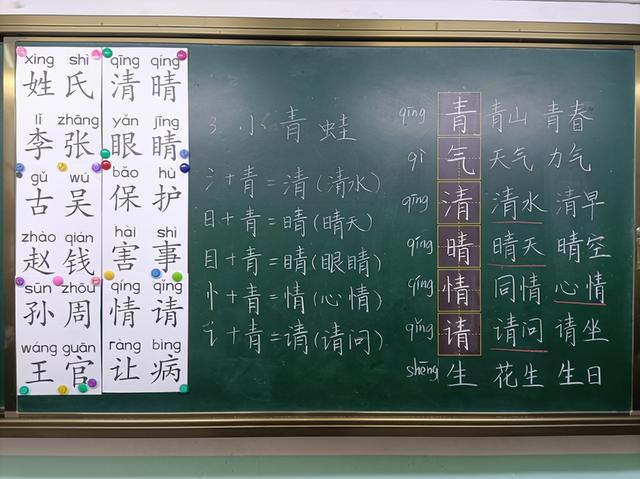 xìng shì
姓 氏
lǐ zhāng
李 张
gǔ wú
古 吴
zhào qián
赵 钱
sūn zhōu
孙 周
wáng guān
王 官
qīng qíng
清 晴
yǎn jīng
眼 睛
bǎo hù
保 护
hài shì
害 事
qíng qǐng
情 请
ràng bìng
让 病
3. 小 青 蛙
氵+青=清(清水)
日+青=晴(晴天)
目+青=睛(眼睛)
忄+青=情(心情)
讠+青=请(请问)
qīng 青 青山 青春
qì 气 天气 力气
qīng 清 清水 清早
qíng 晴 晴天 晴空
qíng 情 同情 心情
qǐng 请 请问 请坐
shēng 生 花生 生日